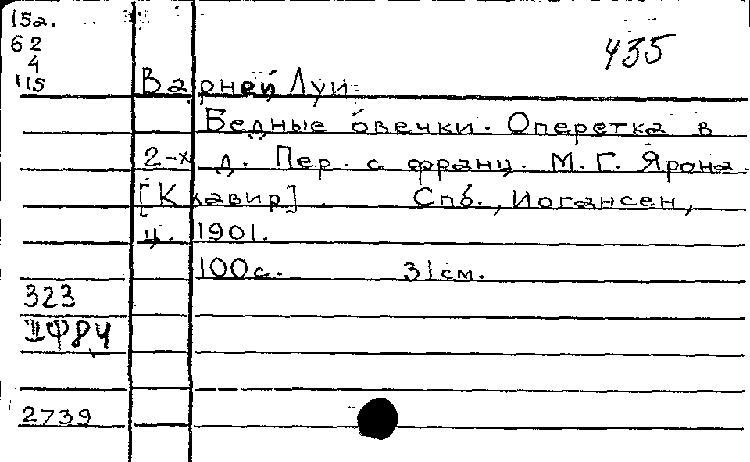 15а.
62
4
115
435
Варней Луи
Бедные овечки. Оперетка в
2-х д. Пер. с франц. М.Г. Ярона.
[Клавир]. Спб., Иогансен,
ц. 1901.
100с. 31см.
323
IIФ84
2739